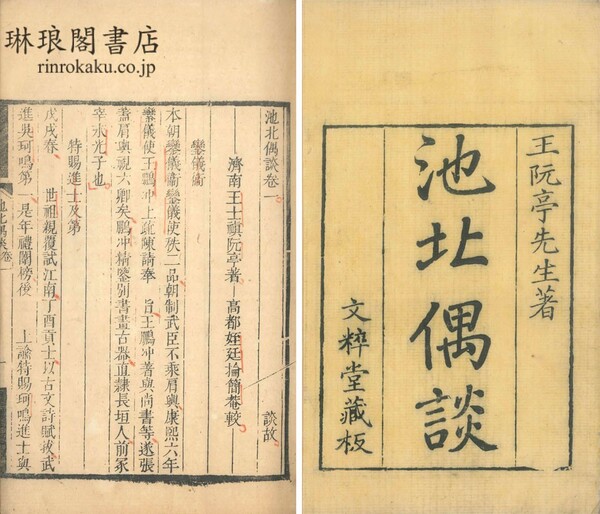 琳琅閣書店
rinrokaku.co.jp
池北偶談卷一
談故
濟南王士禛阮亭著
高都姪廷掄簡菴較
鑾儀衛
本朝鑾儀衛鑾儀使秩二品朝制武臣不乘肩輿康熙六年
鑾儀使王鵬冲上疏陳請奉 旨王鵬冲著與尚書等遂張
蓋肩輿視六卿矣鵬冲精鑒別書畫古器直隸長垣人前冢
宰永光子也
特賜進士及第
戊戌春 世祖親覆試江南丁酉貢士以古文詩賦拔武
進吳珂鳴第一是年禮闈榜後 上諭特賜珂鳴進士與
池北偶談 卷一
王阮亭先生著
池北偶談
文粹堂藏板